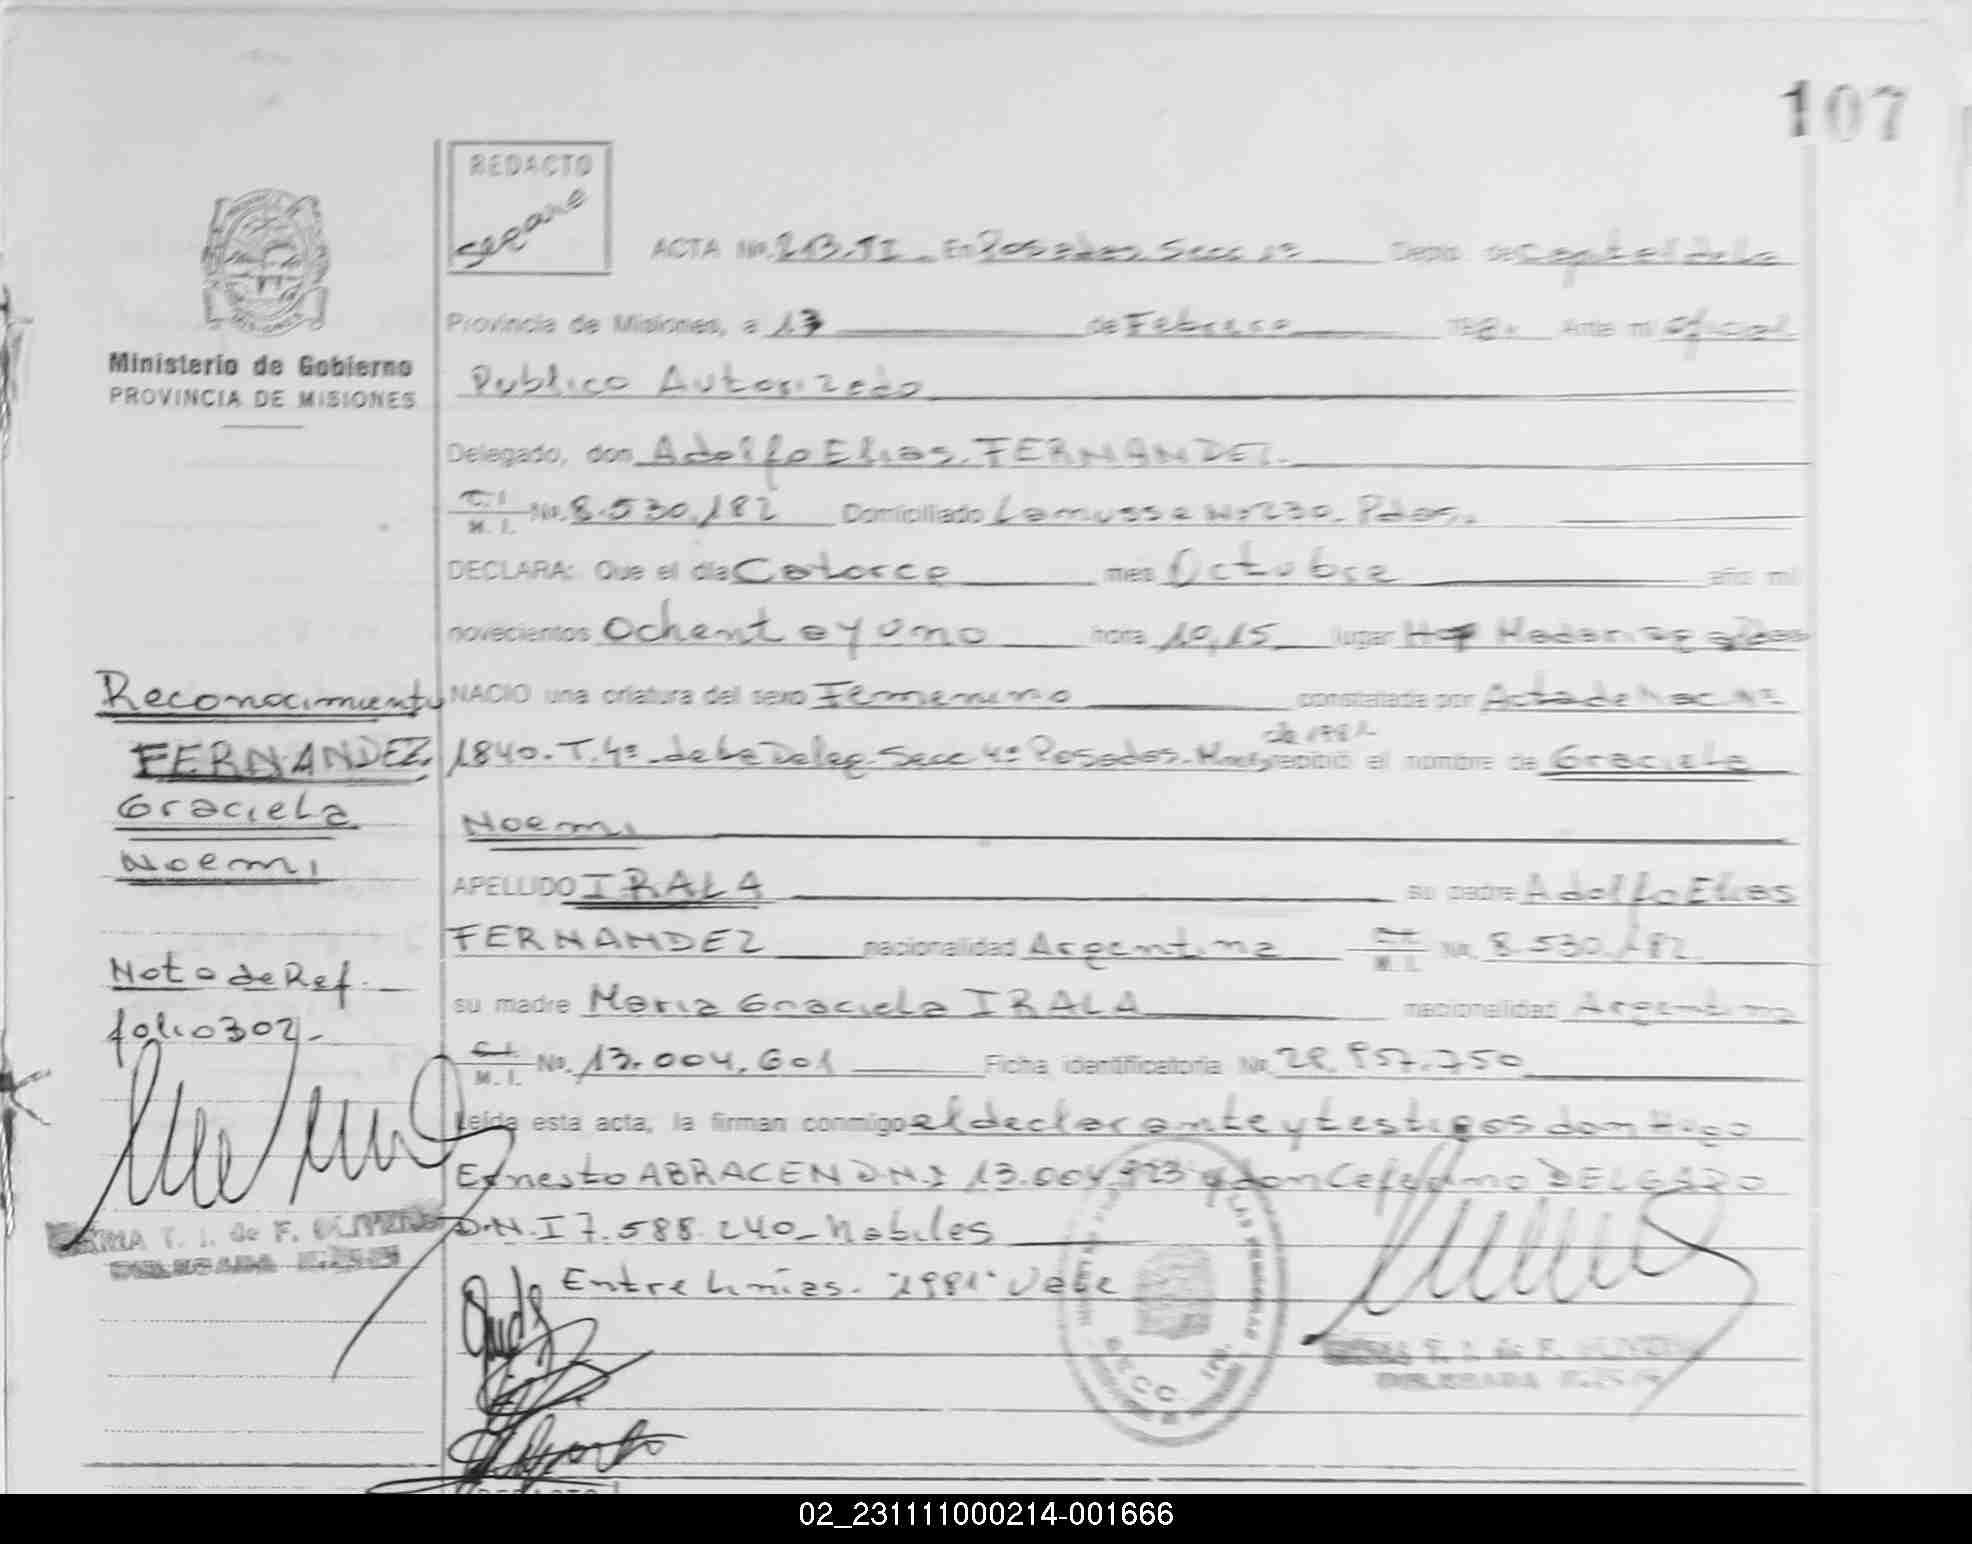 107
REDACTO
ACTA No. 213. En Posadas Secc 1ª Depto. de Capital de La
Provincia de Misiones, a 17 de Febrero 198 Ante mi Oficial
Ministerio de Gobierno
PROVINCIA DE MISIONES
Publico Autorizado
Delegado, don Adolfo Elias. FERNANDEZ.
C.I. M.I. No. 8.530.182 Domiciliado Lamusse Nº 230. Pdas.
DECLARA: Que el día Catorce mes Octubre año mil
novecientos Ochenta y uno hora 10,15 lugar Hosp Madariaga Pdas
Reconocimiento
NACIO una criatura del sexo Femenino constatada por Acta de Nac. Nº
FERNANDEZ,
1840. T. 4º. de La Deleg. Secc 4º Posadas. Mnes, de 1981 recibió el nombre de Graciela
Graciela
Noemi
Noemi
APELLIDO IRALA su padre Adolfo Elias
FERNANDEZ nacionalidad Argentina C.I. M.I. No. 8.530.182
Nota de Ref.
folio 302.-
su madre Maria Graciela IRALA nacionalidad Argentina
C.I. M.I. No. 13.004.601 Ficha identificatoria No. 28.957.750
Leída esta acta, la firman conmigo el declarante y testigos don Hugo
Ernesto ABRACEN D.N.I 13.004.923 y don Ceferino DELGADO
D.N.I 7.588.240_ Habiles
T. I. de F.
DELEGADA
Entre Linias. "1981" Vale
SECC. 1ra.
T. I. de F.
DELEGADA
REDACTO
02_231111000214-001666